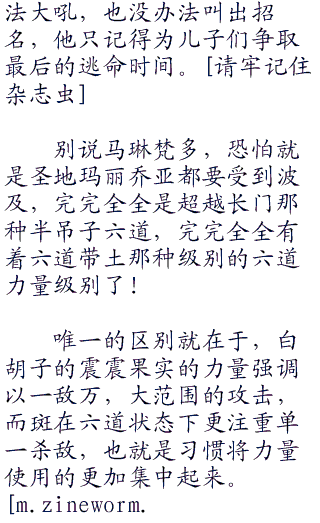 法大吼，也没办法叫出招
名，他只记得为儿子们争取
最后的逃命时间。[请牢记住
杂志虫]
别说马琳梵多，恐怕就
是圣地玛丽乔亚都要受到波
及，完完全全是超越长门那
种半吊子六道，完完全全有
着六道带土那种级别的六道
力量级别了！
唯一的区别就在于，白
胡子的震震果实的力量强调
以一敌万，大范围的攻击，
而斑在六道状态下更注重单
一杀敌，也就是习惯将力量
使用的更加集中起来。
[m.zineworm.